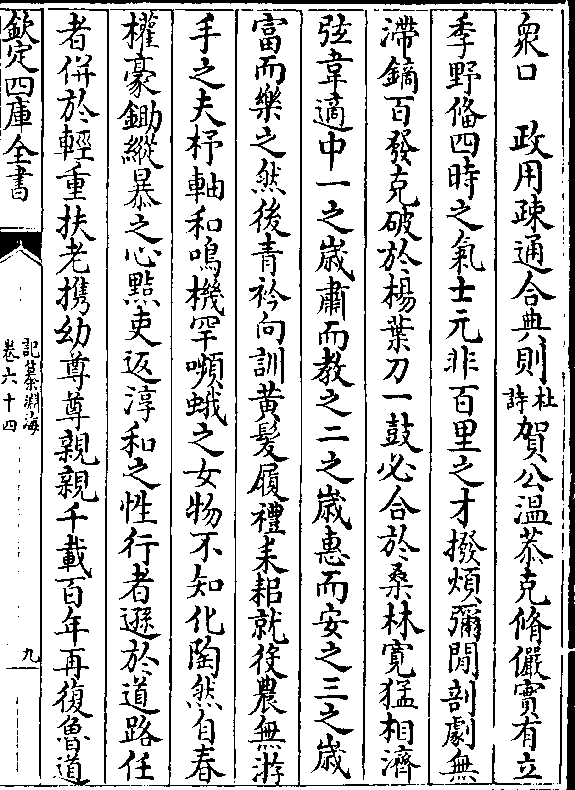 衆口　政用疎通合典則杜詩賀公温恭克脩儼實有立
季野俻四時之氣士元非百里之才撥煩彌閒剖劇無
滯鏑百發克破於楊葉刀一鼓必合於桑林寛猛相濟
弦韋適中一之歳肅而教之二之歳惠而安之三之歳
富而樂之然後青衿向訓黄髪履禮耒耜就役農無游
手之夫杼軸和鳴機罕嚬蛾之女物不知化陶然自春
權豪鋤縱暴之心黠吏返淳和之性行者遜於道路任
者併於輕重扶老攜幼尊尊親親千載百年再復魯道
欽定四庫全書
記纂淵海
卷六十四
九